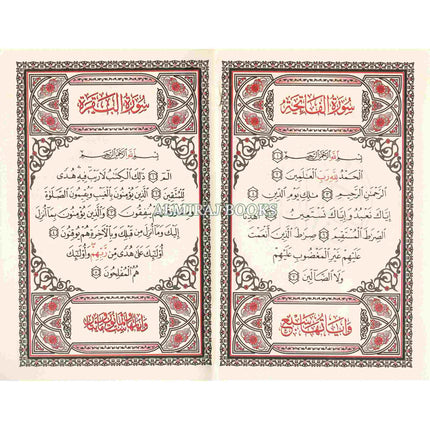 سورة الفاتحة
بسم الله الرحمن الرحيم
الحمد لله رب العلمين
الرحمن الرحيم ملك يوم الدين
إياك نعبد وإياك نستعين اهدنا
الصرط المستقيم صرط الذين أنعمت
عليهم غير المغضوب عليهم
ولا الضالين
وآياتها سبع
سورة البقرة
بسم الله الرحمن الرحيم
الم ذلك الكتب لا ريب فيه هدى
للمتقين الذين يؤمنون بالغيب ويقيمون الصلوة
ينفقون والذين يؤمنون بما أنزل
إليك وما أنزل من قبلك وبالآخرة هم يوقنون
أولئك على هدى من ربهم وأولئك
هم المفلحون
ALMIRAJBOOKS